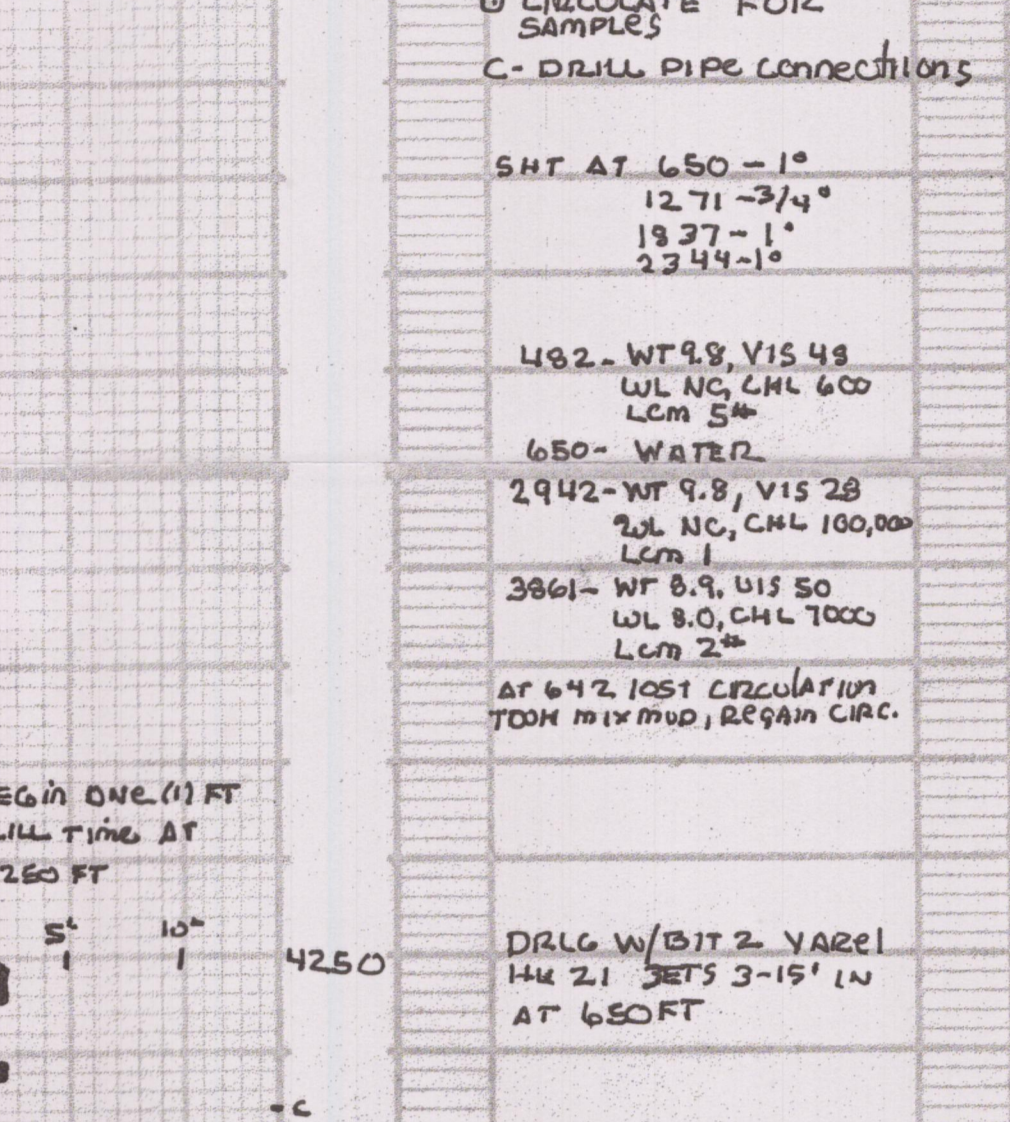 CIRCULATE FOR
SAMPLES
C- DRILL PIPE CONNECTIONS
SHT AT 650 - 1°
1271 - 3/4°
1837 - 1°
2344 - 1°
482 - WT 9.8, VIS 48
WL NC, CHL 600
LCM 5#
650 - WATER
2942 - WT 9.8, VIS 28
WL NC, CHL 100,000
LCM 1
3861 - WT 8.9, VIS 50
WL 8.0, CHL 7000
LCM 2#
AT 642 LOST CIRCULATION
TOOH MIX MUD, REGAIN CIRC.
EGIN ONE (1) FT
ILL TIME AT
250 FT
5" 10"
4250
DRLG W/BIT 2 VAREL
21 JETS 3-15' IN
AT 650FT
- C